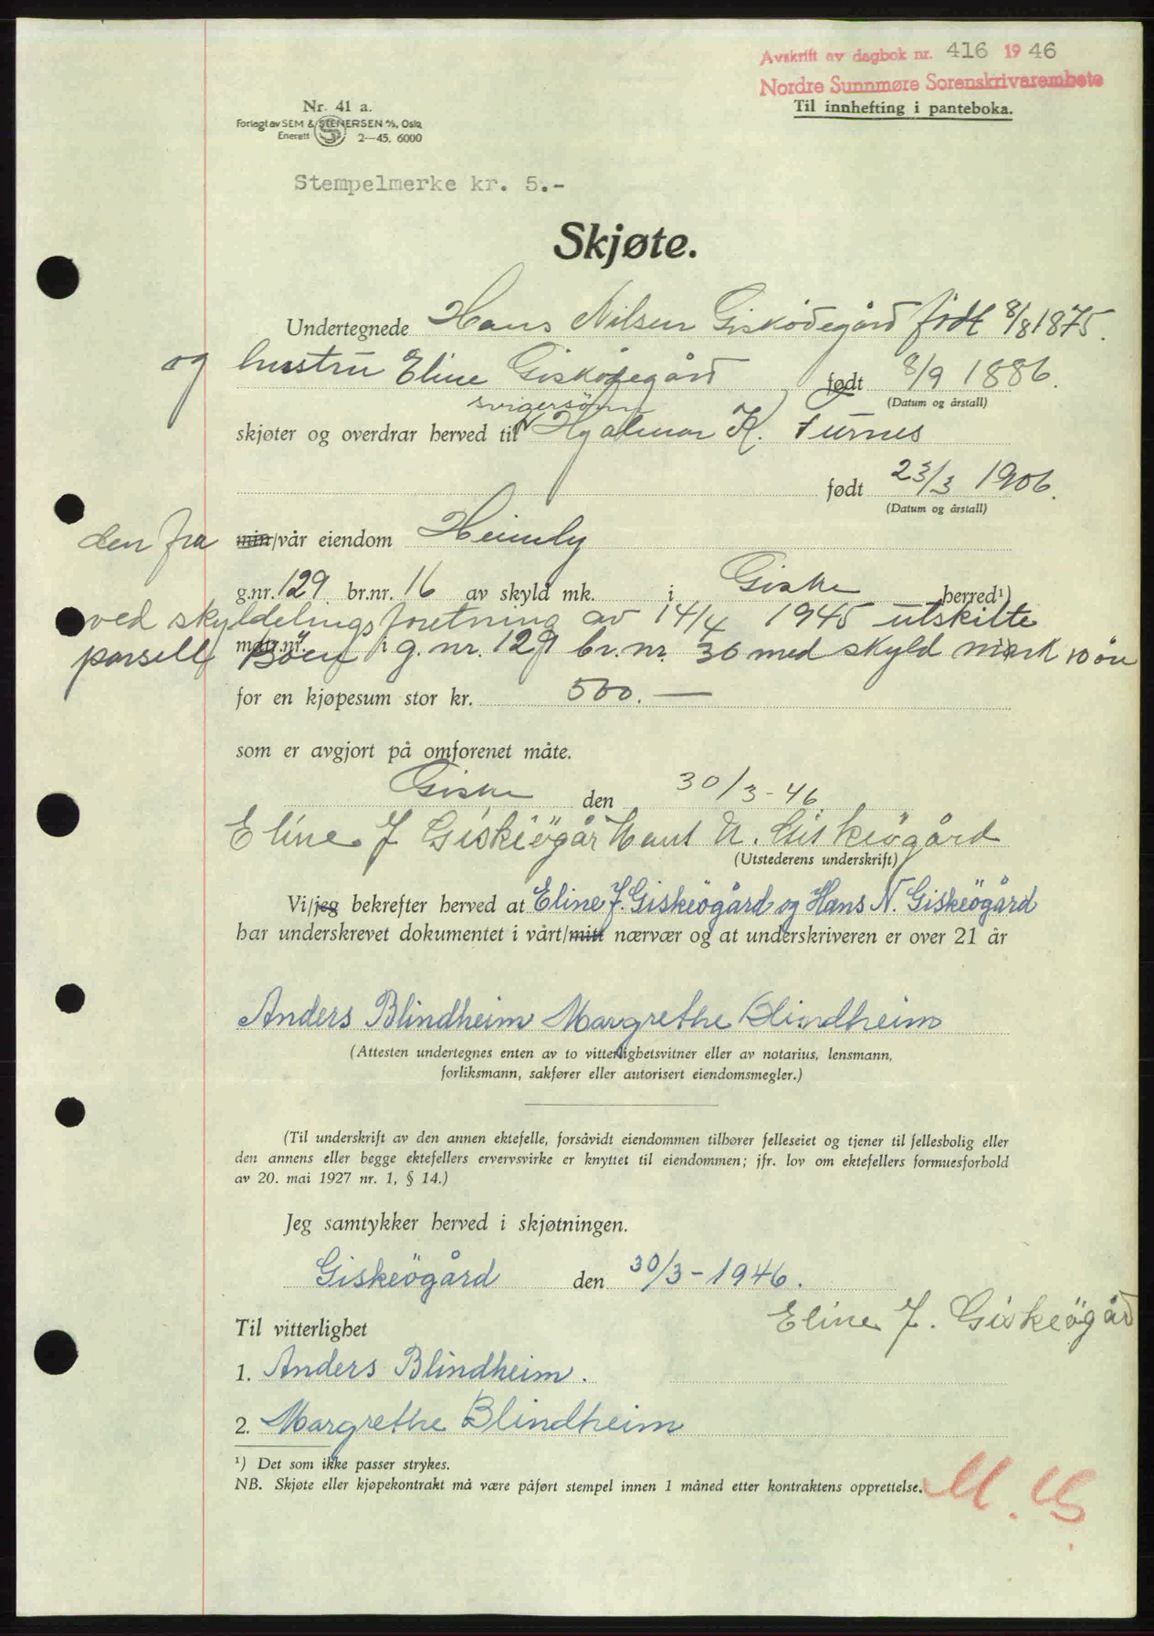 Avskrift av dagbok nr. 416 1946
Nordre Sunnmøre Sorenskrivarembete
Til innhefting i panteboka.
Nr. 41 a.
Forlagt av SEM & STENERSEN A/S, Oslo
Enerett S 2—45. 6000
Stempelmerke kr. 5.-
Skjøte.
Undertegnede Hans Nilsen Giskødegård født 8/8 1875.
og hustru Eline Giskødegård født 8/9 1886.
(Datum og årstall)
svigersønn
skjøter og overdrar herved til Hjalmar K. Furnes
født 23/3 1906.
(Datum og årstall)
den fra min/vår eiendom Heimly
g.nr. 129 br.nr. 16 av skyld mk. i Giske herred¹)
ved skyldelingsforetning av 14/4 1945 utskilte
parsell matr.nr. Böen i g.nr. 129 br.nr. 36 med skyld mark 10 øre
for en kjøpesum stor kr. 500.—
som er avgjort på omforenet måte.
Giske den 30/3-46
Eline J Giskeögår Hans N. Giskeögård
(Utstederens underskrift)
Vi/jeg bekrefter herved at Eline J. Giskeögård og Hans N. Giskeögård
har underskrevet dokumentet i vårt/mitt nærvær og at underskriveren er over 21 år
Anders Blindheim Margrethe Blindheim
(Attesten undertegnes enten av to vitterlighetsvitner eller av notarius, lensmann,
forliksmann, sakfører eller autorisert eiendomsmegler.)
(Til underskrift av den annen ektefelle, forsåvidt eiendommen tilhører felleseiet og tjener til fellesbolig eller
den annens eller begge ektefellers ervervsvirke er knyttet til eiendommen; jfr. lov om ektefellers formuesforhold
av 20. mai 1927 nr. 1, § 14.)
Jeg samtykker herved i skjøtningen.
Giskeögård den 30/3-1946.
Eline J. Giskeögård
Til vitterlighet
1. Anders Blindheim.
2. Margrethe Blindheim
¹) Det som ikke passer strykes.
NB. Skjøte eller kjøpekontrakt må være påført stempel innen 1 måned etter kontraktens opprettelse.